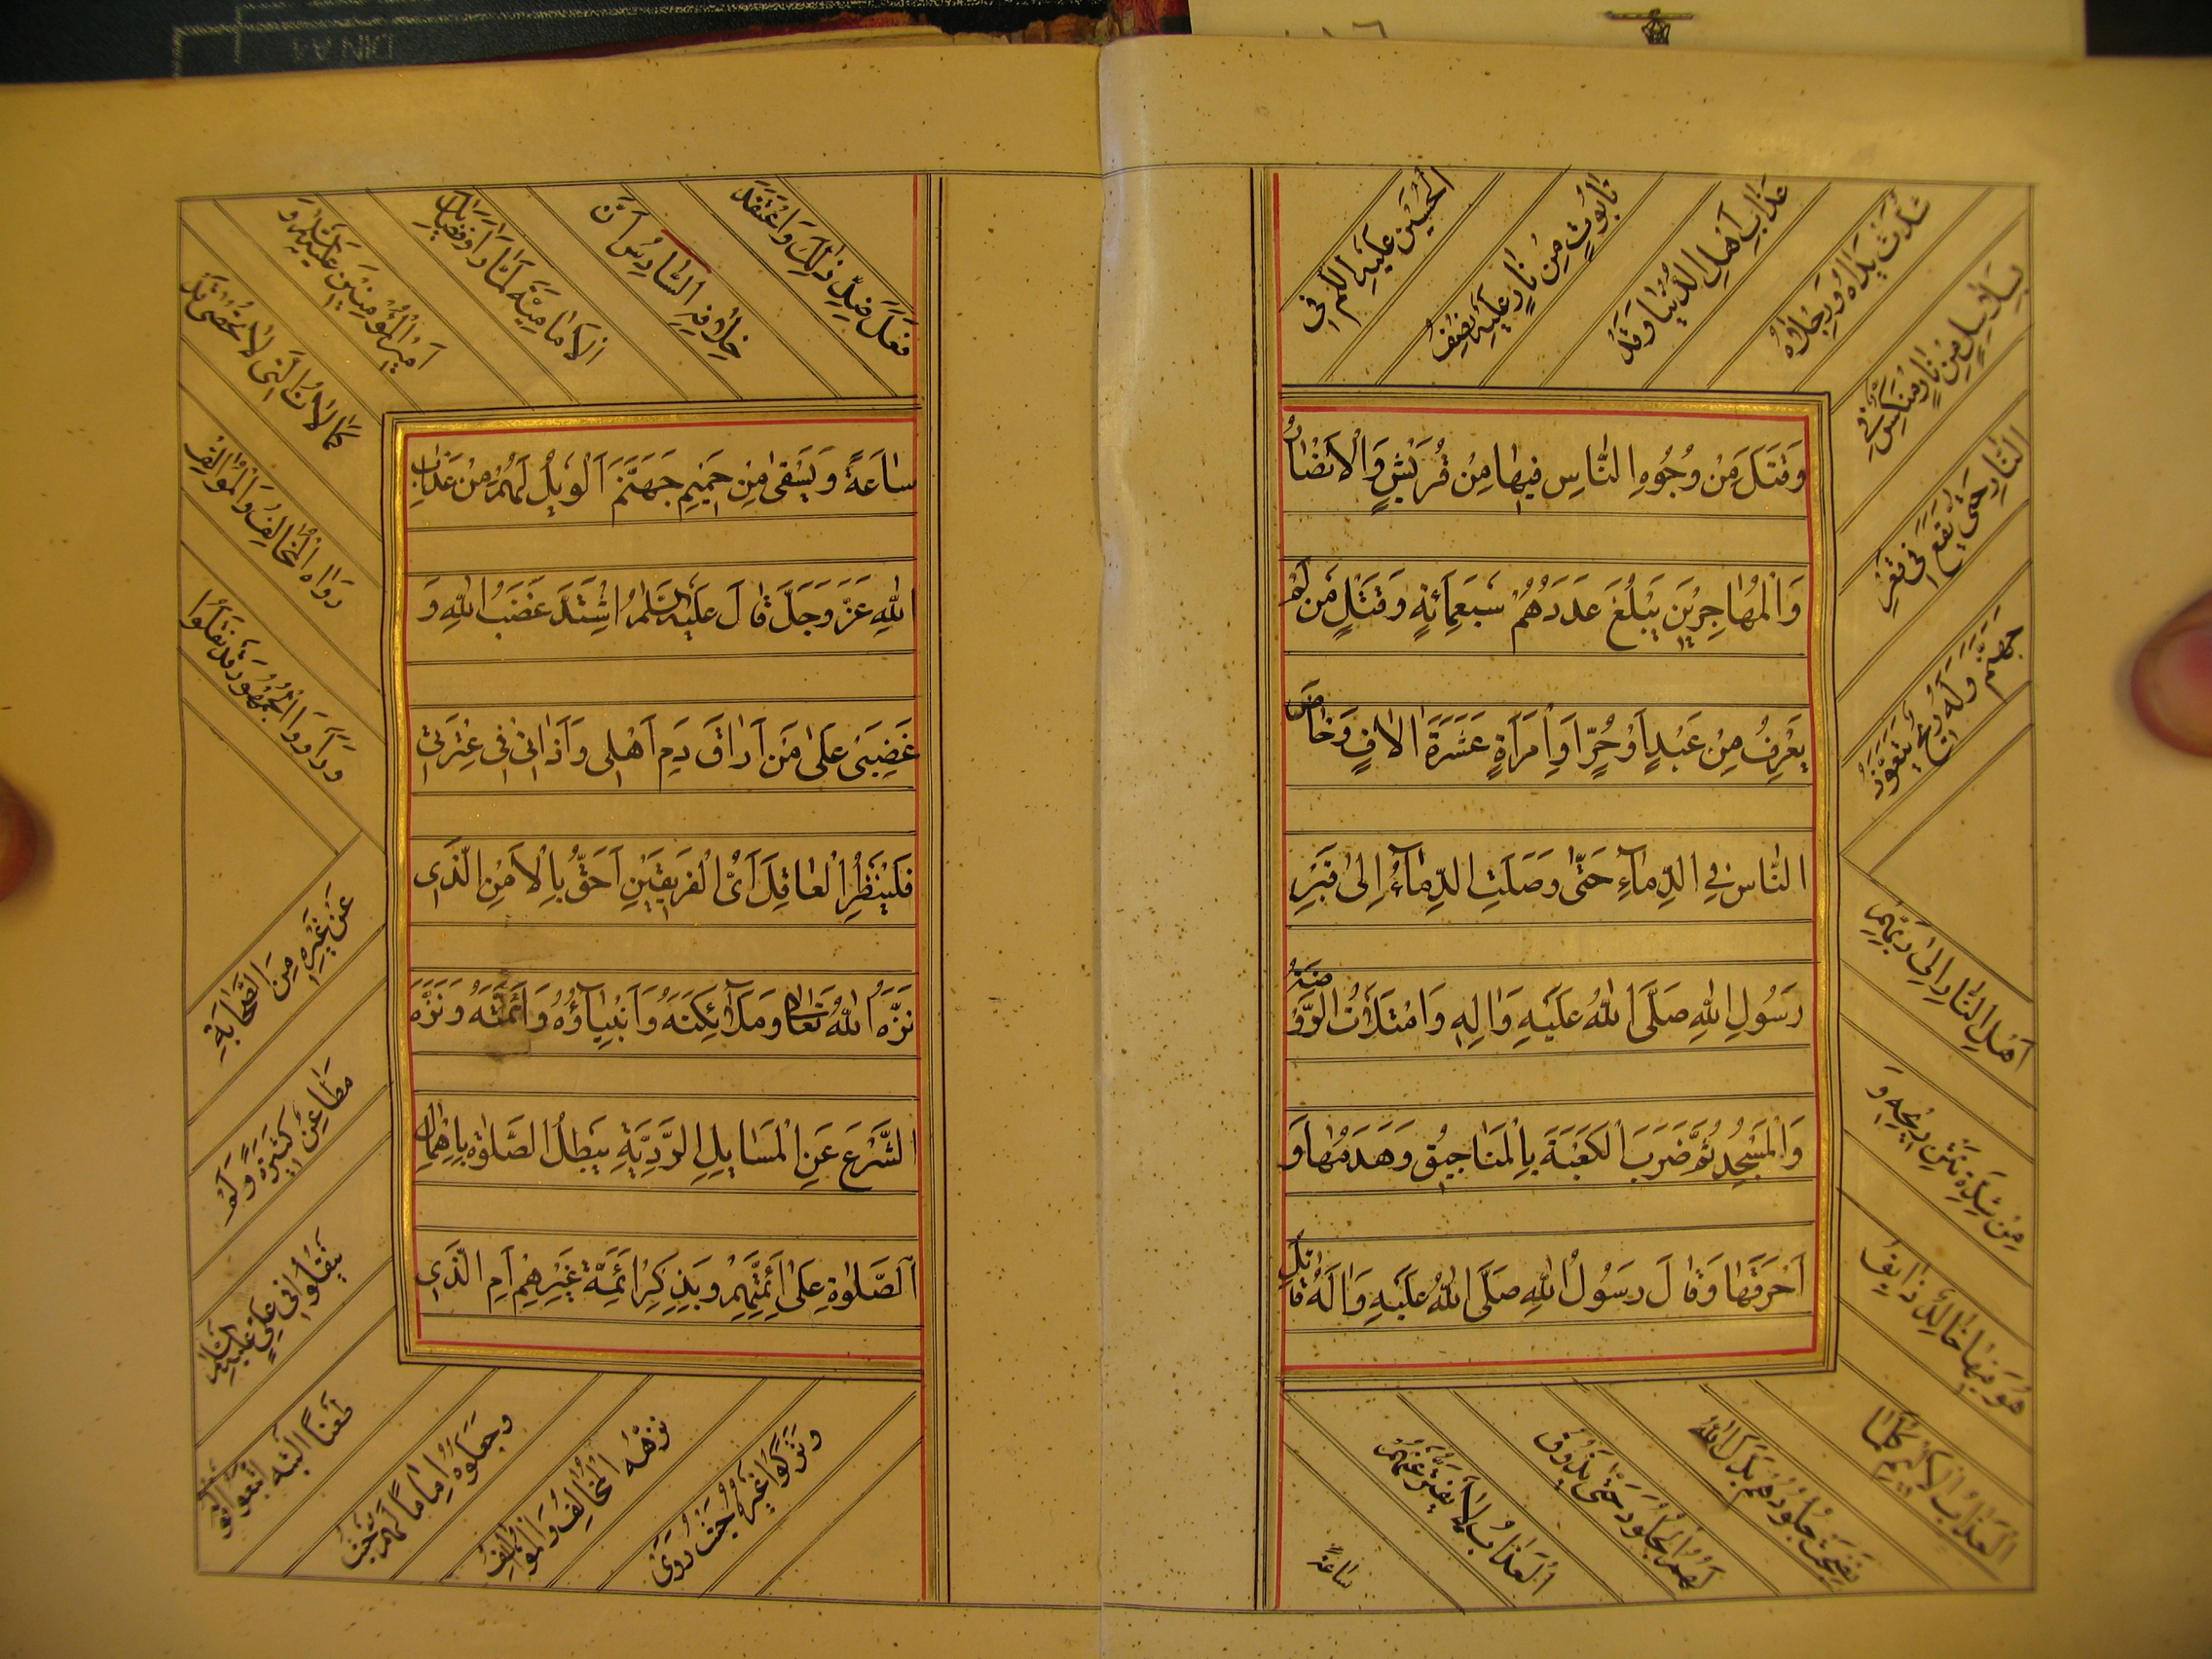 وَقَتَلَ مَنْ وُجُوهِ النَّاسِ فِيهَا مِنْ قُرَيْشٍ وَالْأَنْصَارِ
وَالْمُهَاجِرِينَ يَبْلُغَ عَدَدَهُمْ سَبْعَمِائَةٍ وَقَتْلٍ مَنْ لَمْ
يَعْرِفُ مِنْ عَبْدٍ أَوْ حُرٍّ أَوِ امْرَأَةٍ عَشَرَةَ الَافٍ وَخَاضَ
النَّاسِ فِي الدِّمَآءِ حَتَّى وَصَلَتِ الدِّمَآءُ إِلَى قَبْرِ
رَسُولِ اللهِ صَلَّى اللهُ عَلَيْهِ وَالِهِ وَامْتَلَأَتْ الرَّوْضَةُ
وَالْمَسْجِدُ ثُمَّ ضَرَبَ الْكَعْبَةَ بِالْمَنَاجِيقِ وَهَدَمَهَا وَ
أَحْرَقَهَا وَقَالَ رَسُولُ اللهِ صَلَّى اللهُ عَلَيْهِ وَالَهُ قَاتِلُ
الْحُسَيْنِ عَلَيْهِ السّلم فِي
تَابُوتٍ مِنْ نَارٍ عَلَيْهِ نِصْفُ
عَذَابِ أَهْلِ الدُّنْيَا وَقَدْ
شُدَّتْ يَدَاهُ وَرِجْلَاهُ
بِسَلَاسِلٍ مِنْ نَارٍ مُنَكَّسٌ فِي
النَّارِ حَتَّى يَقَعَ فِي قَعْرِ
جَهَنَّمَ وَلَهُ رِيحٌ يَتَعَوَّذُ
أَهْلِ النَّارِ إِلَى رَبِّهِمْ
مِنْ شِدَّةِ نَتْنِ رِيحِهِ وَ
هُوَ فِيهَا خَالِدٌ ذَايِقُ
الْعَذَابَ الْأَلِيمَ كُلَّمَا
نَضِجَتْ جُلُودُهُمْ بَدَّلَ اللهُ
لَهُمُ الْجُلُودَ حَتَّى يَذُوقَ
الْعَذَابَ لَا يَفْتُرُ عَنْهُمْ
سَاعَةً
سَاعَةً وَيُسْقَى مِنْ حَمِيمِ جَهَنَّمَ الْوَيْلُ لَهُمْ مِنْ عَذَابِ
اللهِ عَزَّ وَجَلَّ قَالَ عَلَيْهِ السَّلَامُ اشْتَدَّ غَضَبُ اللهِ وَ
غَضَبِي عَلَى مَنْ أَرَاقَ دَمِ أَهْلِي وَآذَانِي فِي عِتْرَتِي
فَلْيَنْظُرِ الْعَاقِلَ أَىُّ الْفَرِيقَيْنِ أَحَقُّ بِالْأَمْنِ الَّذِي
نَزَّهَ اللهُ تَعَالَى وَمَلَائِكَتَهُ وَأَنْبِيَاؤُهُ وَأَئِمَّتَهُ وَنَزَّهَ
الشَّرْعَ عَنِ الْمَسَايِلِ الرَّدِيَّةِ يَبْطِلُ الصَّلَوةِ بِإِهْمَالِ
الصَّلَوةِ عَلَى أَئِمَّتِهِمْ وَبِذِكْرِ أَئِمَّةِ غَيْرِهِمْ أَمِ الَّذِي
فَعَلَ ضِدَّ ذَلِكَ وَاعْتَقَدَ
خِلَافِهِ السَّادِسُ أَنَّ
الْإِمَامِيَّةَ لَمَّا رَأَوْا فَضَايِلَ
أَمِيرِ الْمُؤْمِنِينَ عَلَيْهِ السَّلَام وَ
كَمَالَاتِ الَّتِي لَا تُحْصَى قَدْ
رَوَاهُ الْمُخَالِفُ وَالْمُؤَالِفِ
وَرَأَوُا الْجُمْهُورَ قَدْ نَقَلُوا
عَنْ غَيْرِهِ مِنَ الصَّحَابَةِ
مَطَاعِنَ كَثِيرَةً وَلَمْ
يَنْقُلُوا فِي عَلِيٍّ عَلَيْهِ السَّلَم
طَعْنًا الْبَتَّه اتَّبَعُوا قَوْلَهُ
وَجَعَلُوهُ إِمَامًا لَهُمْ حَيْثُ
نَزَّهَهُ الْمُخَالِفُ وَالْمُؤَالِفِ
وَتَرَكُوا غَيْرَهُ حَيْثُ رَوَى